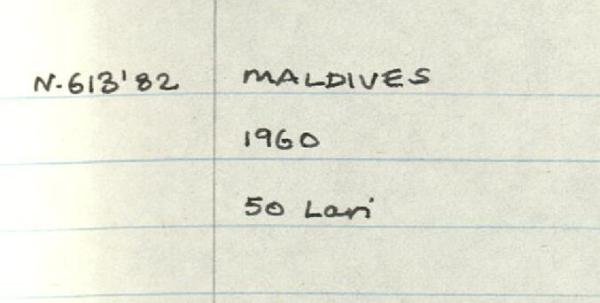 N.613'82 MALDIVES
1960
50 Lari